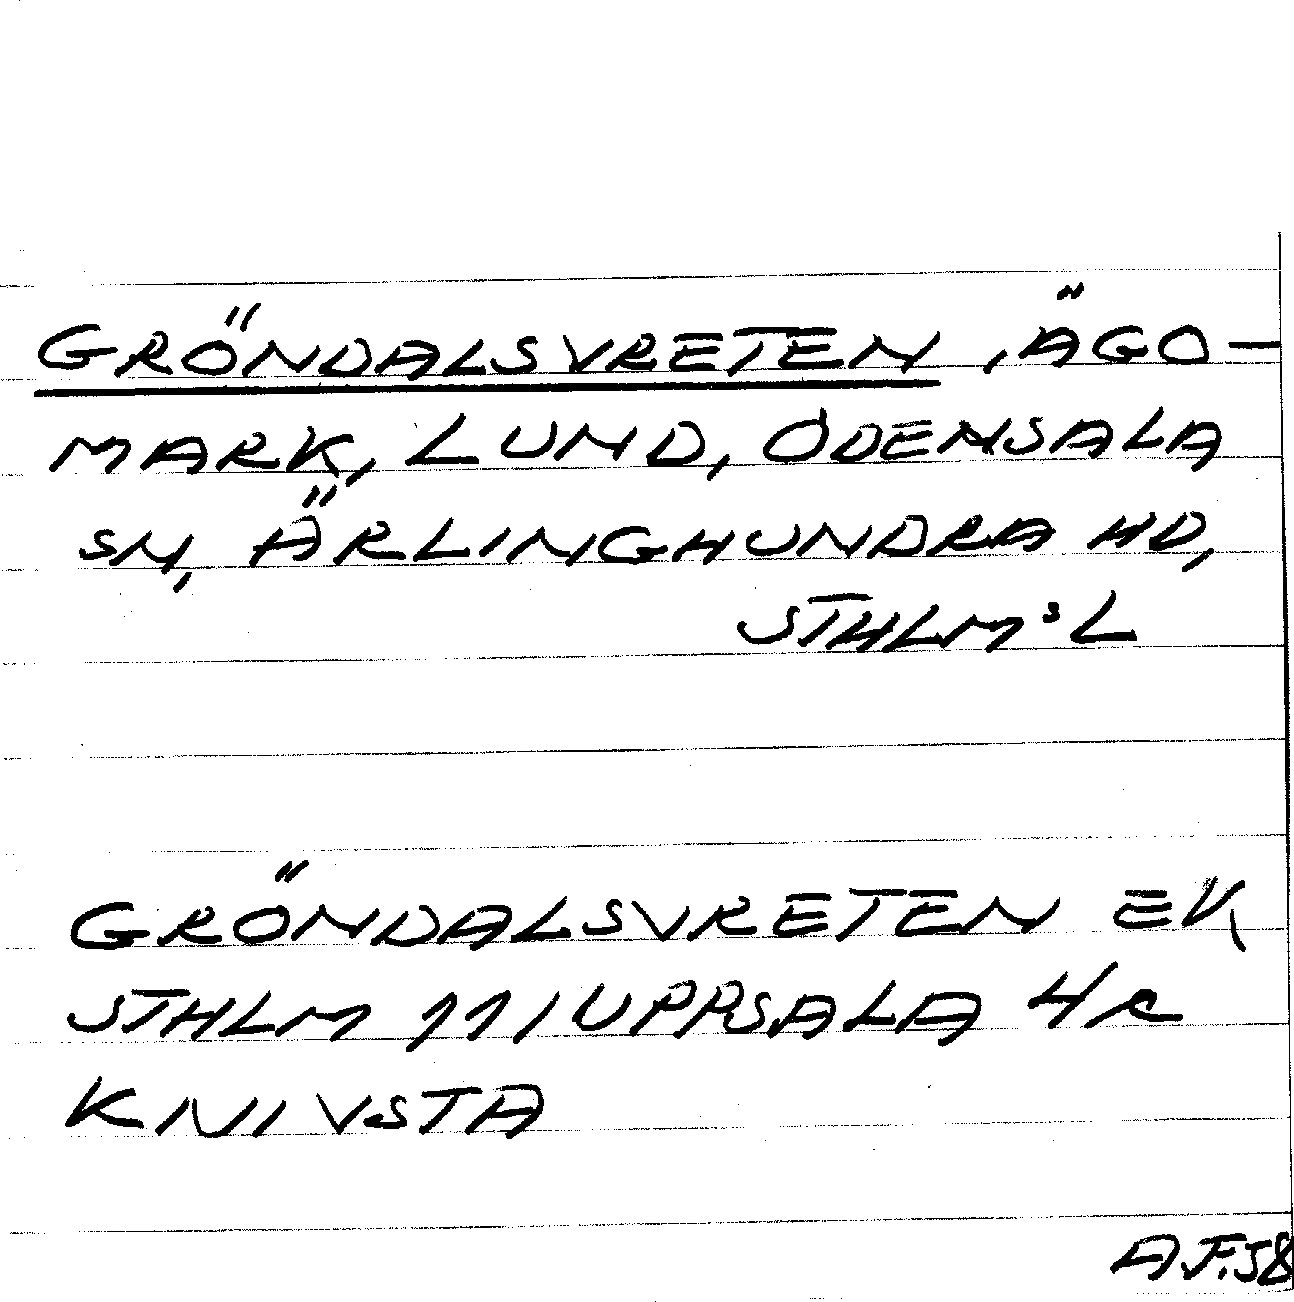 GRÖNDALSVRETEN, ÄGO-
MARK, LUND, ODENSALA
SN, ÄRLINGHUNDRA HD,
STHLMs L
GRÖNDALSVRETEN EK,
STHLM 11 / UPPSALA 4 R
KNIVSTA
A.F.58